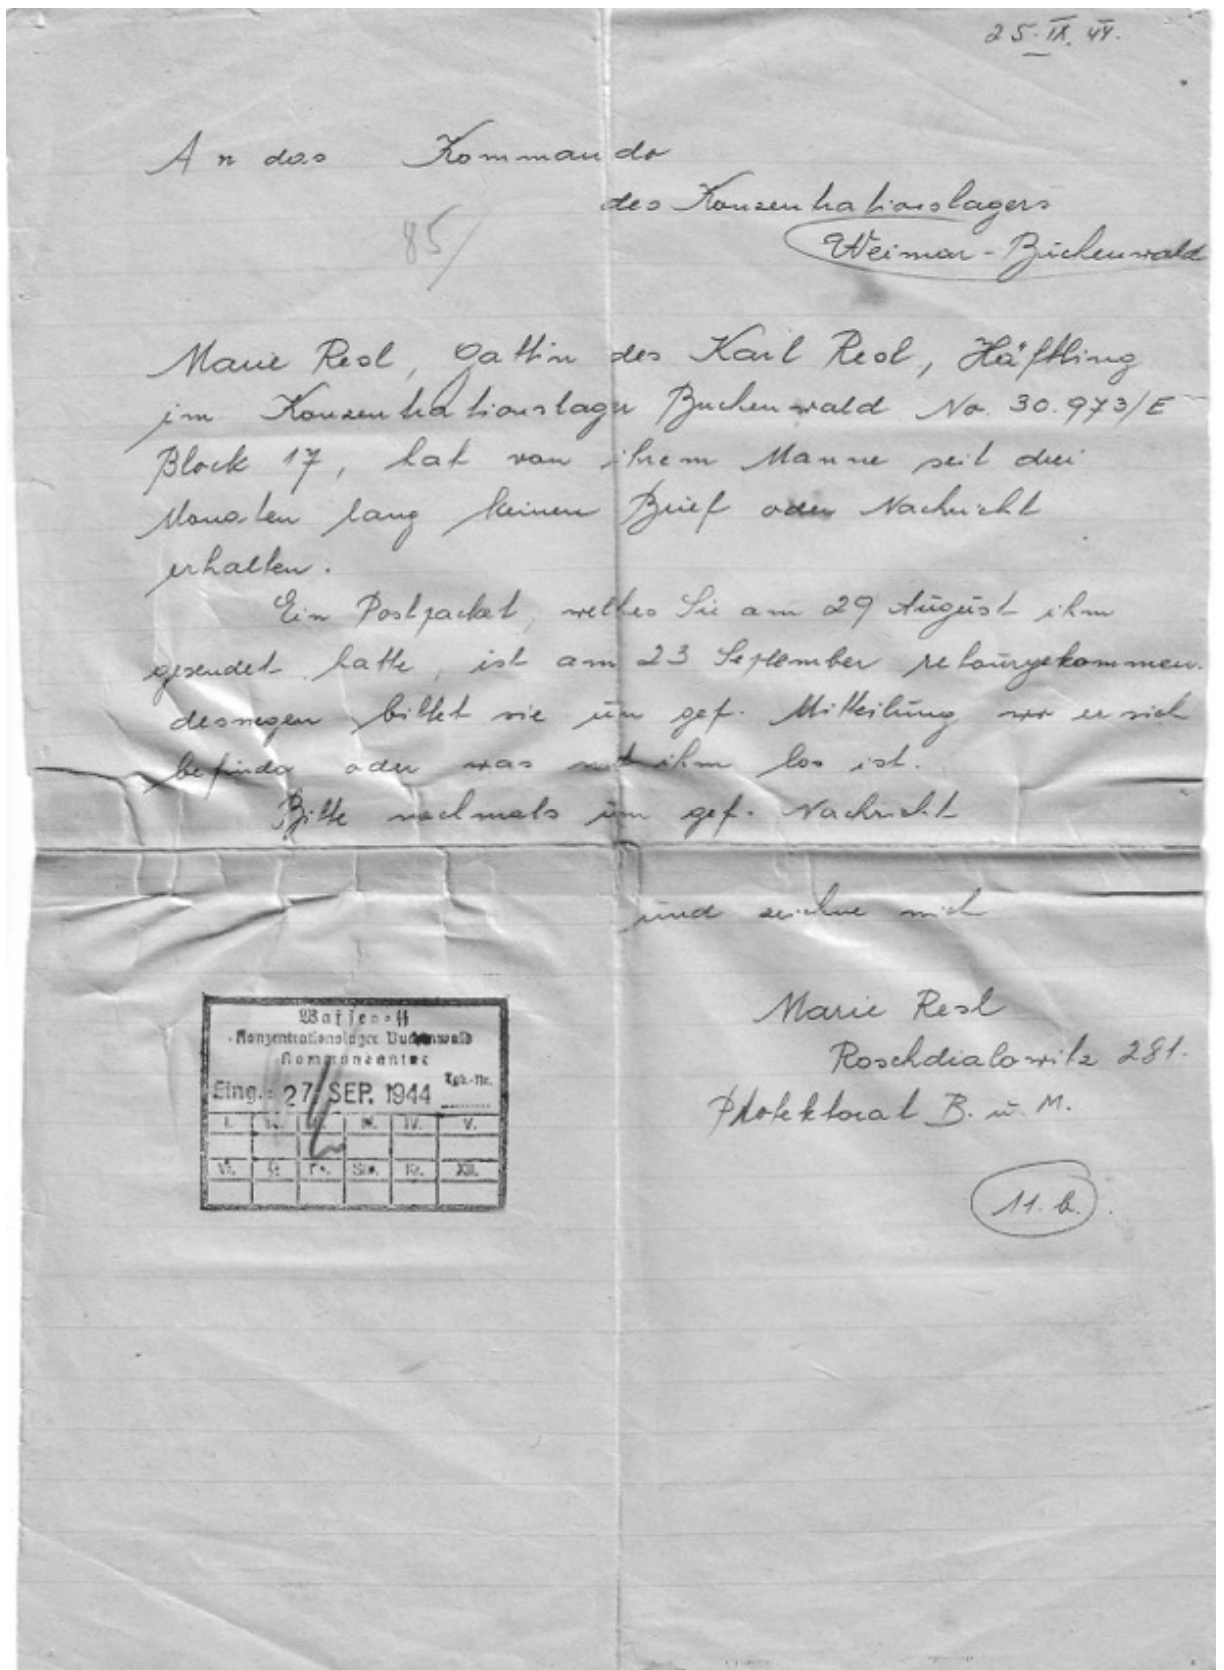 25. IX. 44.
An das Kommando
des Konzentrationslagers
85/
Weimar-Buchenwald
Marie Resl, Gattin des Karl Resl, Häftling
im Konzentrationslager Buchenwald No. 30.973/E
Block 17, hat von ihrem Manne seit drei
Monaten lang keinen Brief oder Nachricht
erhalten.
Ein Postpacket, welches Sie am 29 August ihm
gesendet hatte, ist am 23 September retourgekommen.
deswegen bittet sie um gef. Mitteilung wo er sich
befinde oder was mit ihm los ist.
Bitte nochmals um gef. Nachricht
und zeichne mich
Marie Resl
Roschdialowitz 281.
Protektorat B. u. M.
11. b.
Waffen-SS
Konzentrationslager Buchenwald
Kommandantur
Eing.: 27. SEP. 1944 Tgb.-Nr.
I. III. IV. V.
VI.
XII.